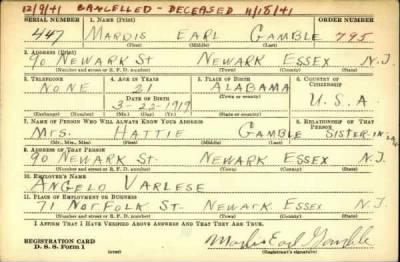 12/9/41 CANCELLED - DECEASED 11/18/41
SERIAL NUMBER 1. NAME (Print) ORDER NUMBER
447 MARDIS EARL GAMBLE 795
(First) (Middle) (Last)
2. ADDRESS (Print)
90 NEWARK St NEWARK ESSEX N.J.
(Number and street or R. F. D. number) (Town) (County) (State)
3. TELEPHONE 4. AGE IN YEARS 5. PLACE OF BIRTH 6. COUNTRY OF CITIZENSHIP
NONE 21 ALABAMA
DATE OF BIRTH (Town or county)
3-22-1919 U.S.A.
(Exchange) (Number) (Mo.) (Day) (Yr.) (State or country)
7. NAME OF PERSON WHO WILL ALWAYS KNOW YOUR ADDRESS 8. RELATIONSHIP OF THAT PERSON
MRS. HATTIE GAMBLE SISTER-IN LAW
(Mr., Mrs., Miss) (First) (Middle) (Last)
9. ADDRESS OF THAT PERSON
90 NEWARK St. NEWARK ESSEX N.J.
(Number and street or R. F. D. number) (Town) (County) (State)
10. EMPLOYER'S NAME
ANGELO VARLESE
11. PLACE OF EMPLOYMENT OR BUSINESS
71 NORFOLK ST. NEWARK ESSEX N.J.
(Number and street or R. F. D. number) (Town) (County) (State)
I AFFIRM THAT I HAVE VERIFIED ABOVE ANSWERS AND THAT THEY ARE TRUE.
REGISTRATION CARD
D. S. S. Form 1 (over) Mardis Earl Gamble
(Registrant's signature)